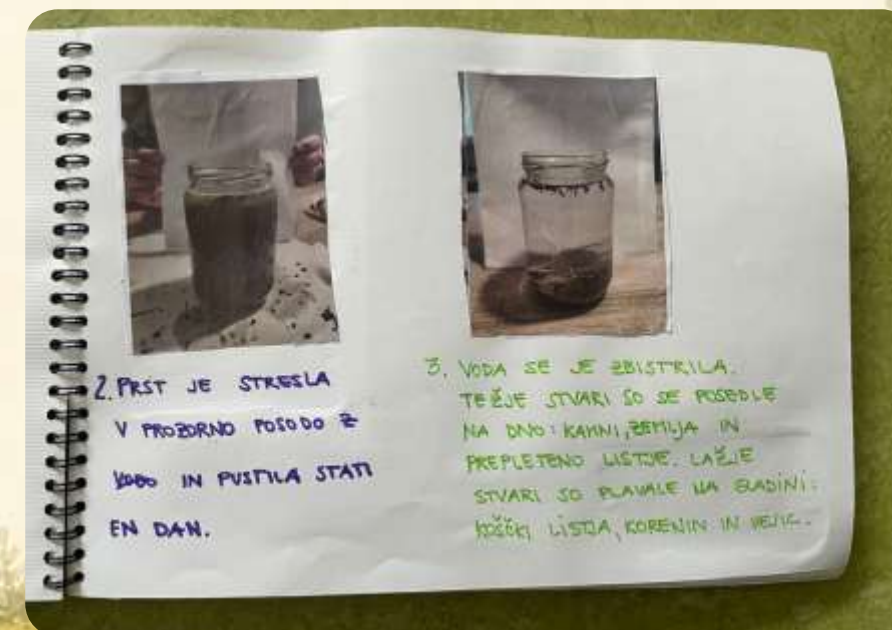 2. PRST JE STRESLA
V PROZORNO POSODO Z
VODO IN PUSTILA STATI
EN DAN.
3. VODA SE JE ZBISTRILA.
TEŽJE STVARI SO SE POSEDLE
NA DNO: KAMNI, ZEMLJA IN
PREPLETENO LISTJE. LAŽJE
STVARI SO PLAVALE NA GLADINI:
KOŠČKI LISTJA, KORENIN IN VEJIC.